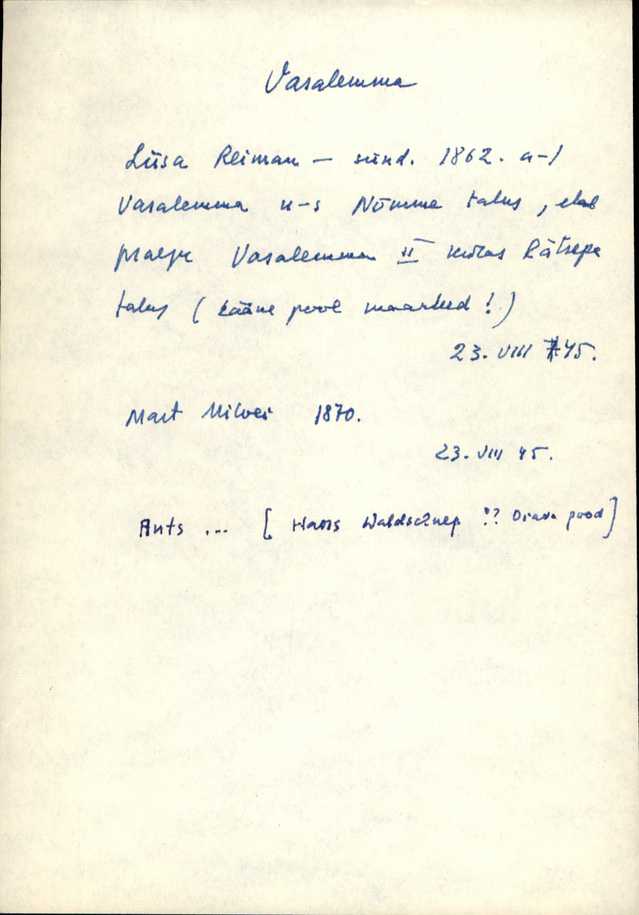 Vasalemma
Liisa Reiman – sünd. 1862. a-l
Vasalemma n-s Nõmme talus, elab
praegu Vasalemma II külas Rätsepa
talus ( Lääne pool maanteed ! )
23. VIII 45.
Mart Nilvei 1870.
23. VIII 45.
Ants ... [ Hans Waldschnep ?? Orava pood ]